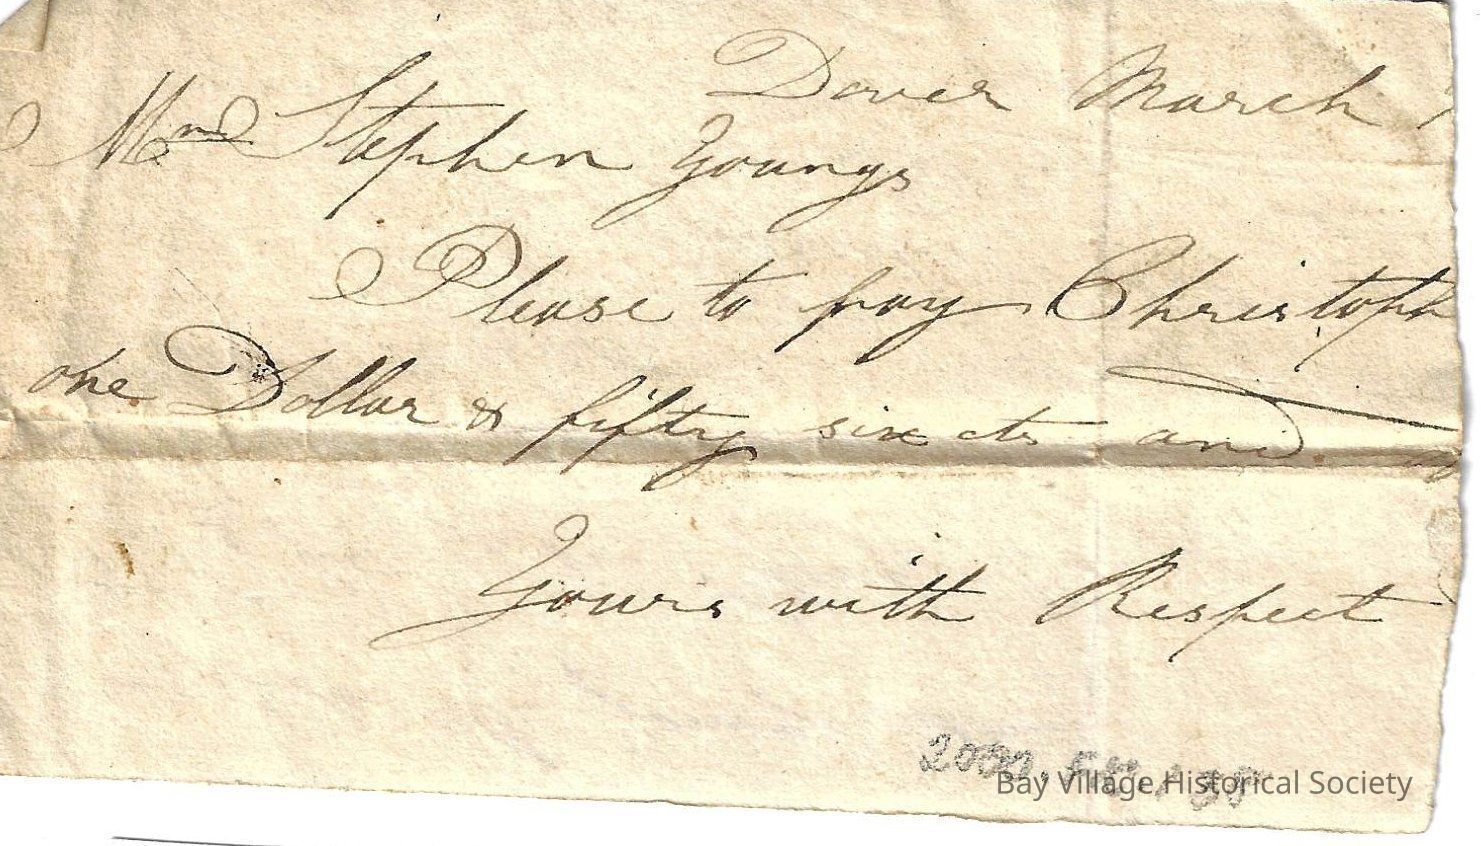 Dover March
Stephen Youngs
Please to pay Christoph
one Dollar & fifty six cts and
Yours with Respect
Bay Village Historical Society